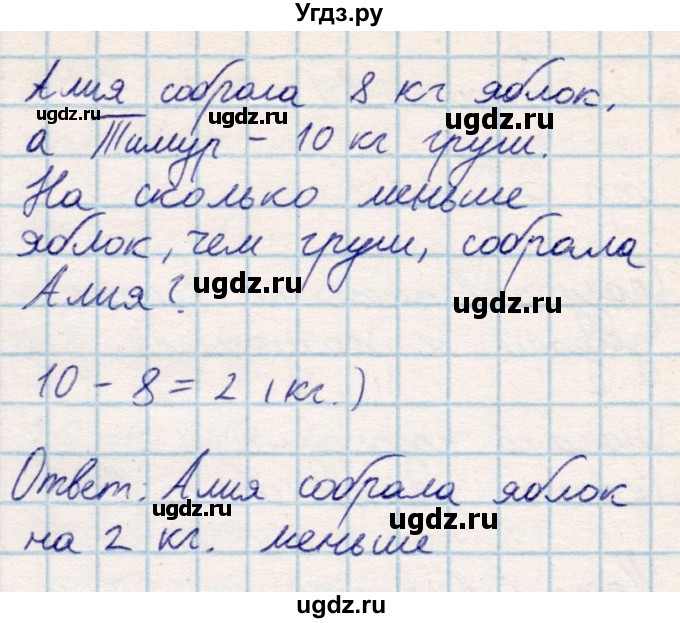 Угдз.ру
Алия собрала 8 кг яблок,
ugdz.ru ugdz.ru ugdz.ru
а Тимур - 10 кг груш.
На сколько меньше
яблок, чем груш, собрала
Алия?
ugdz.ru ugdz.ru
10 - 8 = 2 (кг.)
Ответ: Алия собрала яблок
ugdz.ru ugdz.ru
на 2 кг. меньше
ugdz.ru